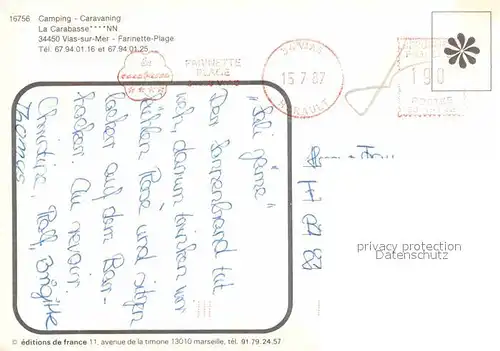 16756 Camping - Caravaning
La Carabasse****NN
34450 Vias-sur-Mer - Farinette-Plage
Tél. 67.94.01.16 et 67.94.01.25
la
carabasse
FARINETTE
PLAGE
34-VIAS
15.7.87
HERAULT
190
POSTES
"Sali
Der Sonnenbrand tut
weh, darum trinken wir
kühlen Rosé und sitzen
locker auf dem Bar-
hocker. Au revoir
Christine, Ralf, Brigitte
Thomas
privacy protection
Datenschutz
© éditions de france 11, avenue de la timone 13010 marseille, tél. 91.79.24.57